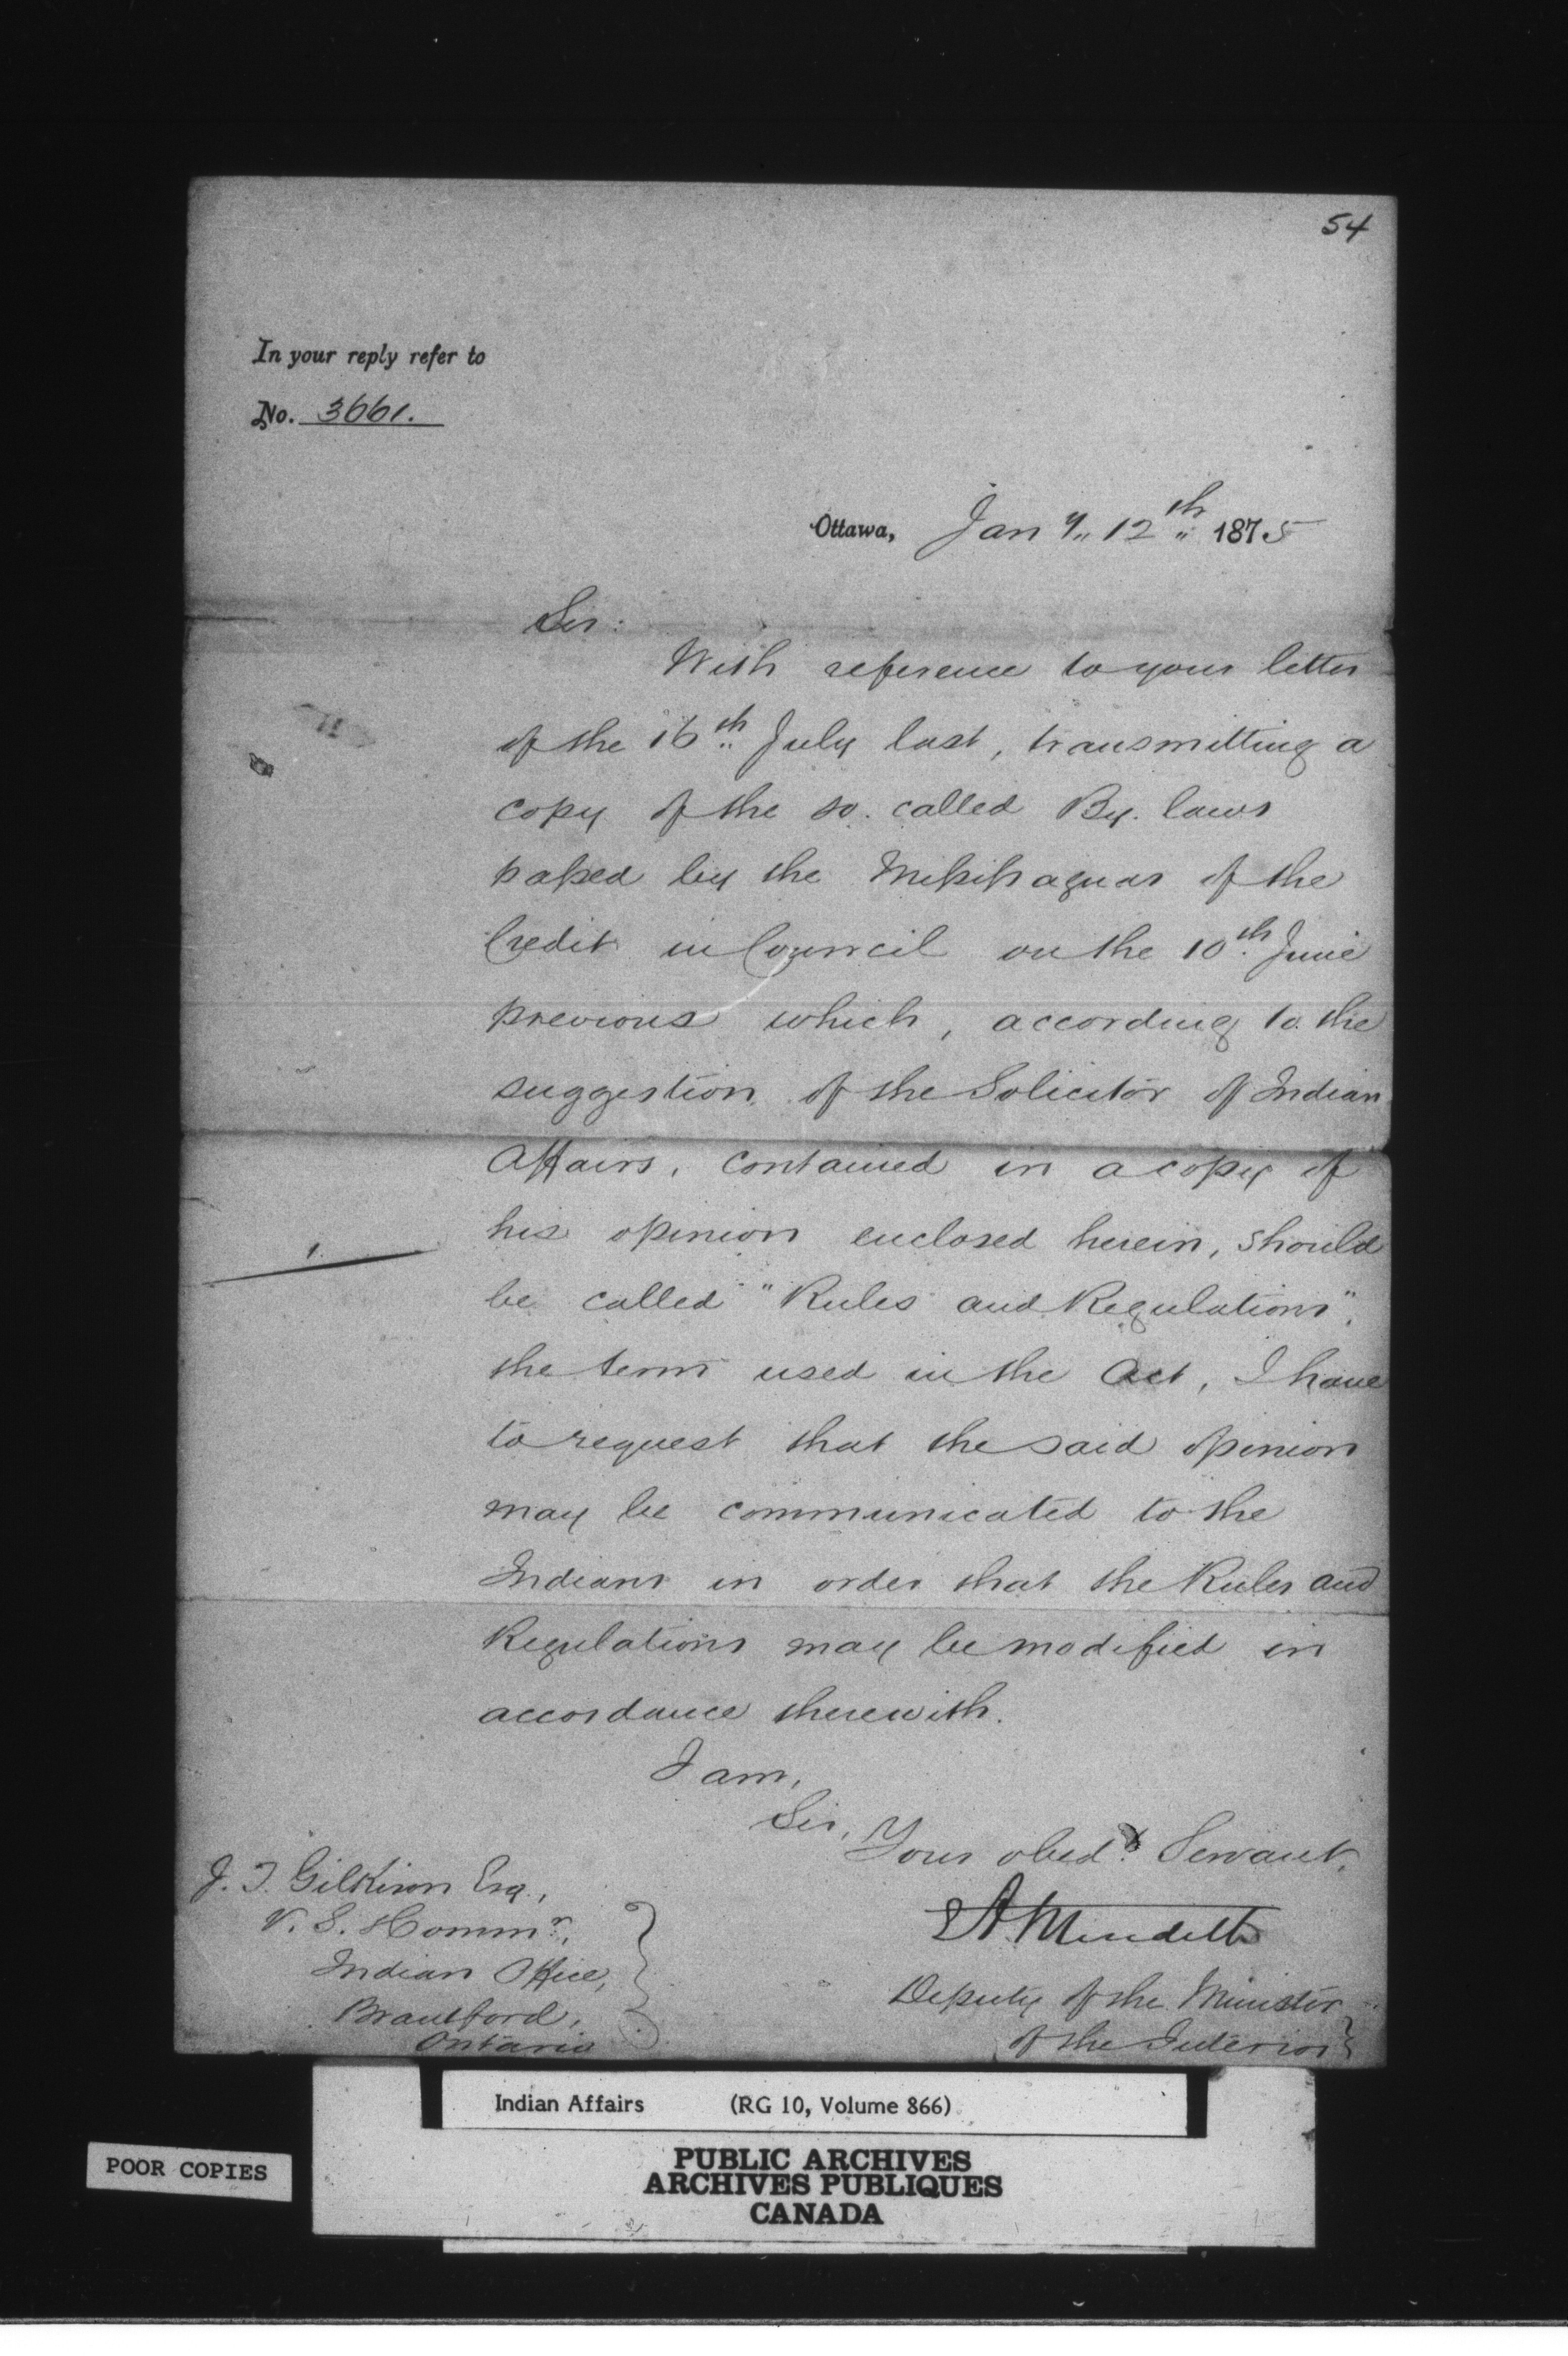 54
In your reply refer to
No. 3661.
Ottawa, Jany. 12th 1875
Sir:
With reference to your letter
of the 16th July last, transmitting a
copy of the so. called By. laws
passed by the Missisaguas of the
Credit in Council on the 10th June
previous which, according to the
suggestion of the Solicitor of Indian
Affairs, contained in a copy of
his opinion enclosed herein, should
1.
be called "Rules and Regulations",
the term used in the Act, I have
to request that the said opinion
may be communicated to the
Indians in order that the Rules and
Regulations may be modified in
accordance therewith.
I am,
Sir,
Your obedt. Servant,
Deputy of the Minister
of the Interior
J. T. Gilkison Esq.,
V. S. Commr.,
Indian Office,
Brantford,
Ontario
Indian Affairs (RG 10, Volume 866)
PUBLIC ARCHIVES
ARCHIVES PUBLIQUES
CANADA
POOR COPIES